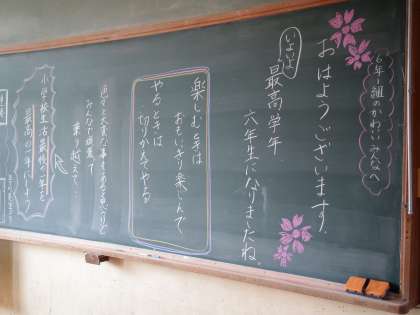 6年1組のかわいいみんなへ
おはようございます。
いよいよ
最高学年
六年生になりましたね
楽しむときは
おもいきり楽しんで
やるときは
切りかえてやる
色々と大変な事もあると思うけど
みんなで協力して
乗り越えて
小学校生活最後の一年を
最高の一年にしよう